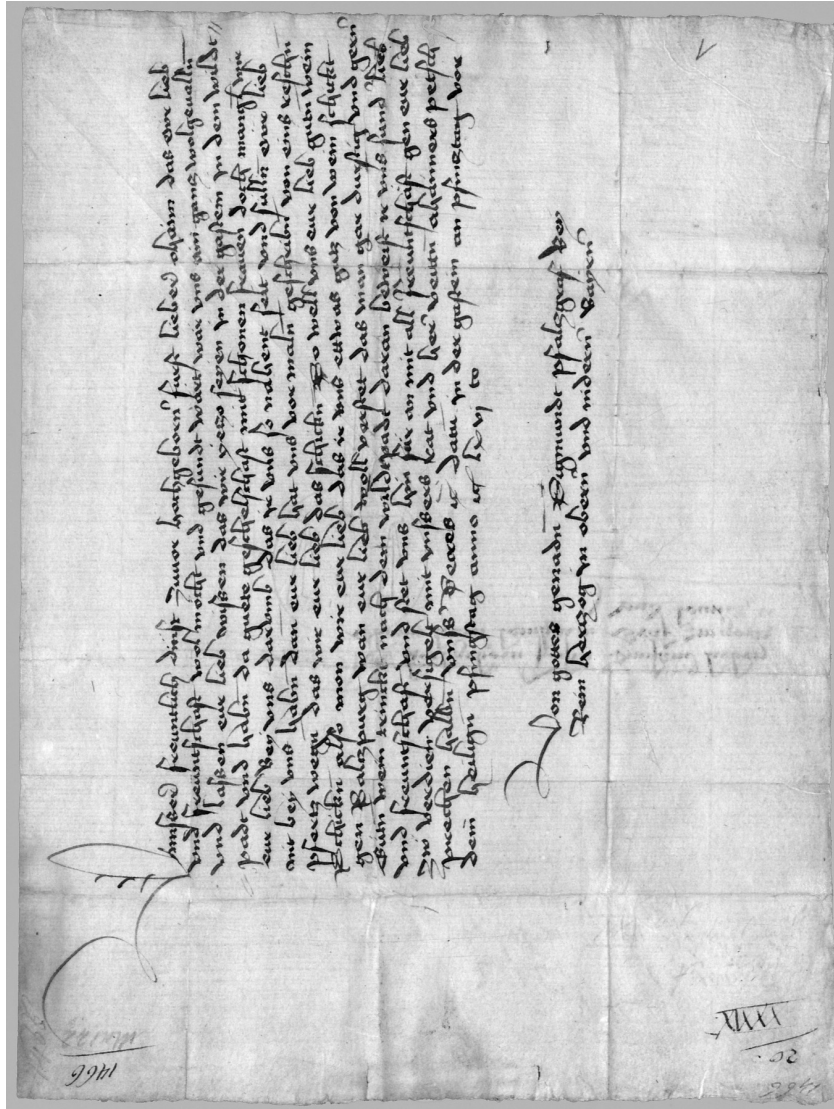 Unnser freuntlich dinst zuuor hochgeborn furst lieber oheim das eur lieb
und freuntschaft wol mocht und gesundt wart war uns ain gancz wolgeualln
und lassen eur lieb wissen das wir yeczo seyen in der gastein in dem wildt//
padt und habn da guete geschelschaft mit schonen frauen doch manglt wir
eur lieb bei uns darumb das ir uns so nahent seit und sulln eur lieb
nit bey uns habn dan eur lieb hat uns vor maln geschribn von eins
pfertz wegn das wir eur lieb das schickn So well uns eur lieb gutn wein
Schickn also mon wir eur lieb das ir uns ettwas gutz von wein schickt
gen Salczpurg wan eur lieb woll verstet das man gar durstig und gern
Gutn wein trinckt nach dem wildtpadt daran beweist ir uns sund lieb
und freuntschaft und stet uns hin fur an mit all freuntschaft gen eur lieb
zw verdien versigelt mit unsers rat und her veitn ahamers petsch
halbn unss Secrets etc datu in der gastein an pfincztag vor
dem heilign pfingstag anno etc lxvj to
Von gottes genadn Sigmundt pfalczgraf bey
Rein herczog in obern und nidern Bayrn
1466
XXXIX
20.
1466